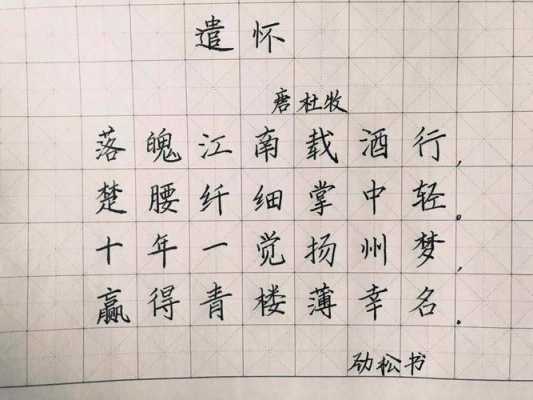 遣怀
唐 杜牧
落魄江南载酒行，
楚腰纤细掌中轻。
十年一觉扬州梦，
赢得青楼薄幸名。
劲松书